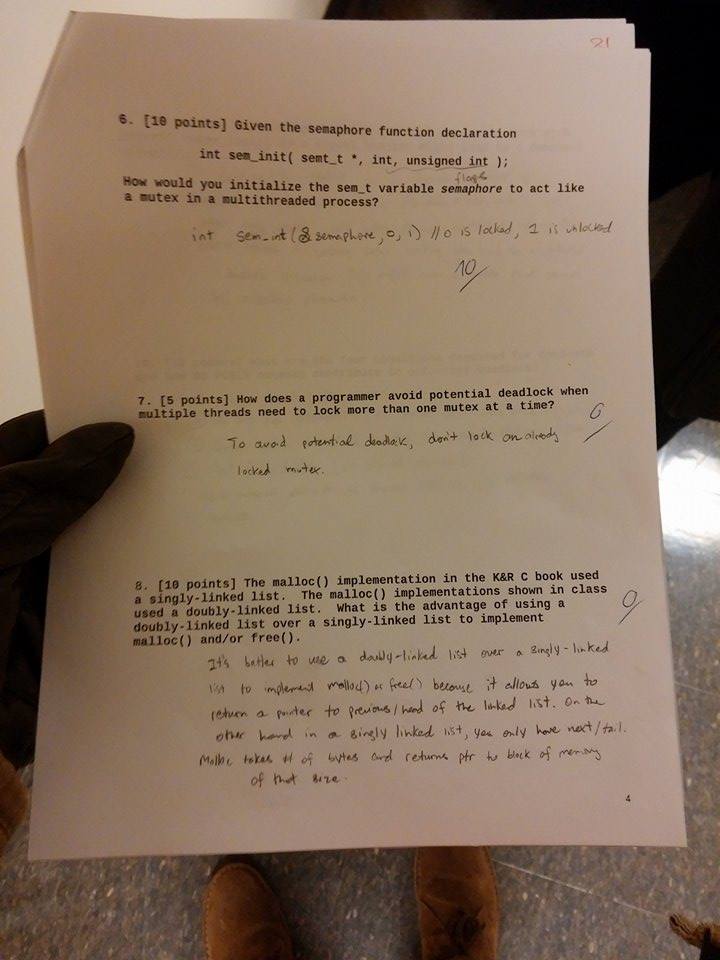 21
6. [10 points] Given the semaphore function declaration
int sem_init( semt_t *, int, unsigned int );
flags
How would you initialize the sem_t variable semaphore to act like
a mutex in a multithreaded process?
int sem_int (&semaphore, 0, 1) // 0 is locked, 1 is unlocked
10/
7. [5 points] How does a programmer avoid potential deadlock when
multiple threads need to lock more than one mutex at a time?
0/
To avoid potential deadlock, don't lock an already
locked mutex.
8. [10 points] The malloc() implementation in the K&R C book used
a singly-linked list. The malloc() implementations shown in class
used a doubly-linked list. What is the advantage of using a
doubly-linked list over a singly-linked list to implement
malloc() and/or free().
0/
It's better to use a doubly-linked list over a singly-linked
list to implement malloc() or free() because it allows you to
return a pointer to previous/head of the linked list. On the
other hand in a singly linked list, you only have next/tail.
Malloc takes # of bytes and returns ptr to block of memory
of that size.
4